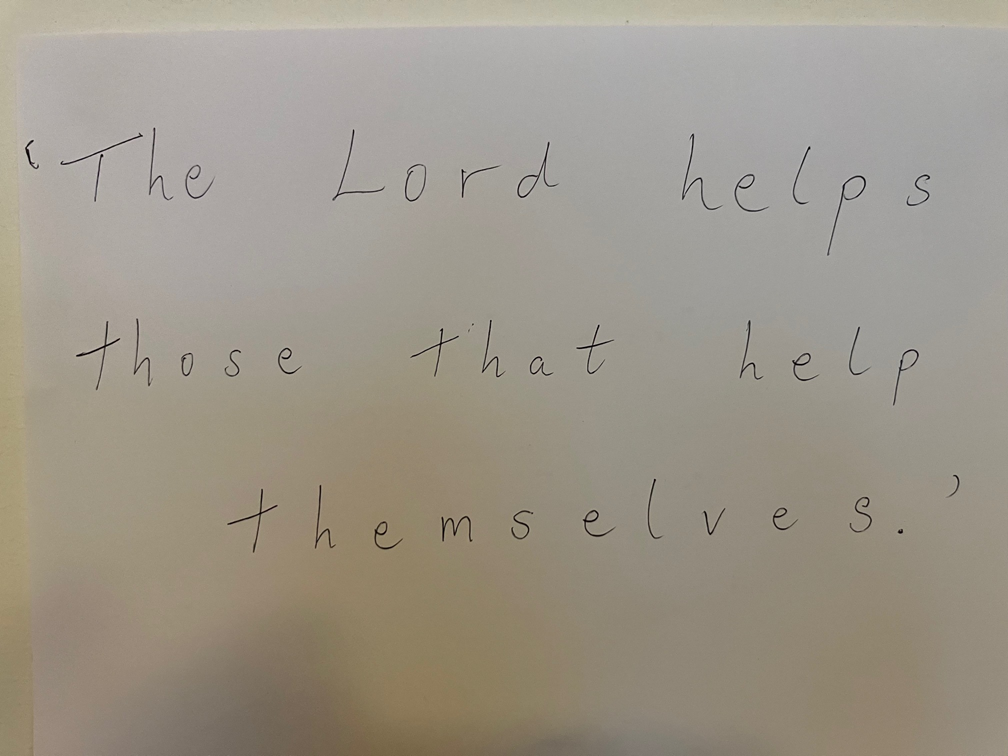 ‘The Lord helps
those that help
themselves.’